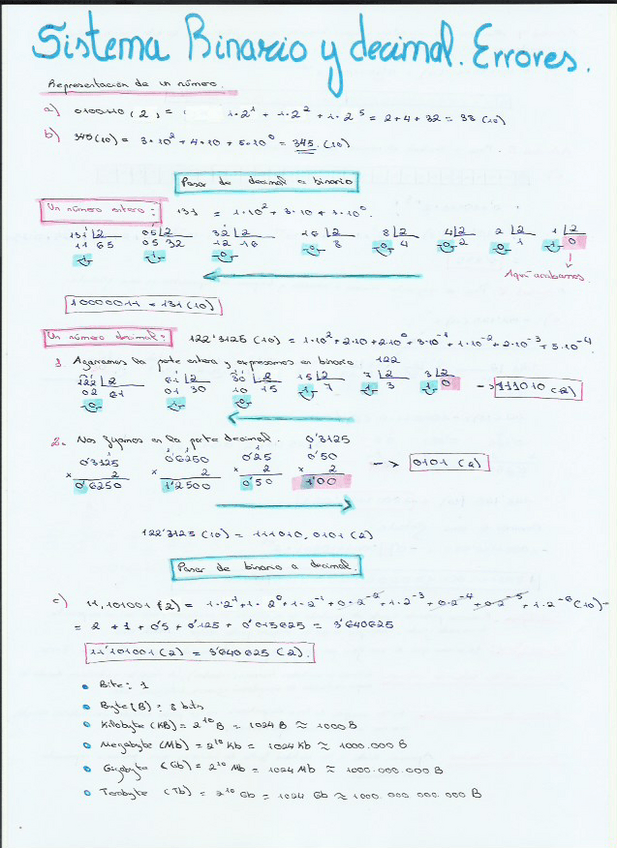 Sistema Binario y decimal. Errores.
Representación de un número.
a) 0100110 (2) = 1·2¹ + 1·2² + 1·2⁵ = 2+4+32 = 38 (10)
b) 345(10) = 3·10² + 4·10 + 5·10⁰ = 345 (10)
Pasar de decimal a binario
Un número entero: 131 = 1·10² + 3·10 + 1·10⁰.
131 |2 65 |2 32 |2 16 |2 8 |2 4 |2 2 |2 1 |2
11 65 05 32 12 16 0 8 0 4 0 2 0 1 1 0
1 1 0
Aquí acabamos
10000011 = 131 (10)
Un número decimal: 122'3125 (10) = 1·10² + 2·10 + 2·10⁰ + 3·10⁻¹ + 1·10⁻² + 2·10⁻³ + 5·10⁻⁴
1. Agarramos la parte entera y expresamos en binario. 122
122 |2 61 |2 30 |2 15 |2 7 |2 3 |2
02 61 01 30 10 15 1 7 1 3 1 0 → 111010 (2)
0 1 0
2. Nos fijamos en la parte decimal. 0'3125
0'3125 0'6250 0'25 0'50
x 2 x 2 x 2 x 2 → 0101 (2)
0'6250 1'2500 0'50 1'00
122'3125 (10) = 111010,0101 (2)
Pasar de binario a decimal.
c) 11,101001 (2) = 1·2¹ + 1·2⁰ + 1·2⁻¹ + 0·2⁻² + 1·2⁻³ + 0·2⁻⁴ + 0·2⁻⁵ + 1·2⁻⁶ (10) =
= 2 + 1 + 0'5 + 0'125 + 0'015625 = 3'640625
11'101001 (2) = 3'640625 (2).
• Bite: 1
• Byte (B): 8 bits
• Kilobyte (KB) = 2¹⁰ B = 1024 B ≈ 1000 B
• Megabyte (Mb) = 2¹⁰ Kb = 1024 Kb ≈ 1000.000 B
• Gigabyte (Gb) = 2¹⁰ Mb = 1024 Mb ≈ 1000.000.000 B
• Terabyte (Tb) = 2¹⁰ Gb = 1024 Gb ≈ 1000.000.000.000 B